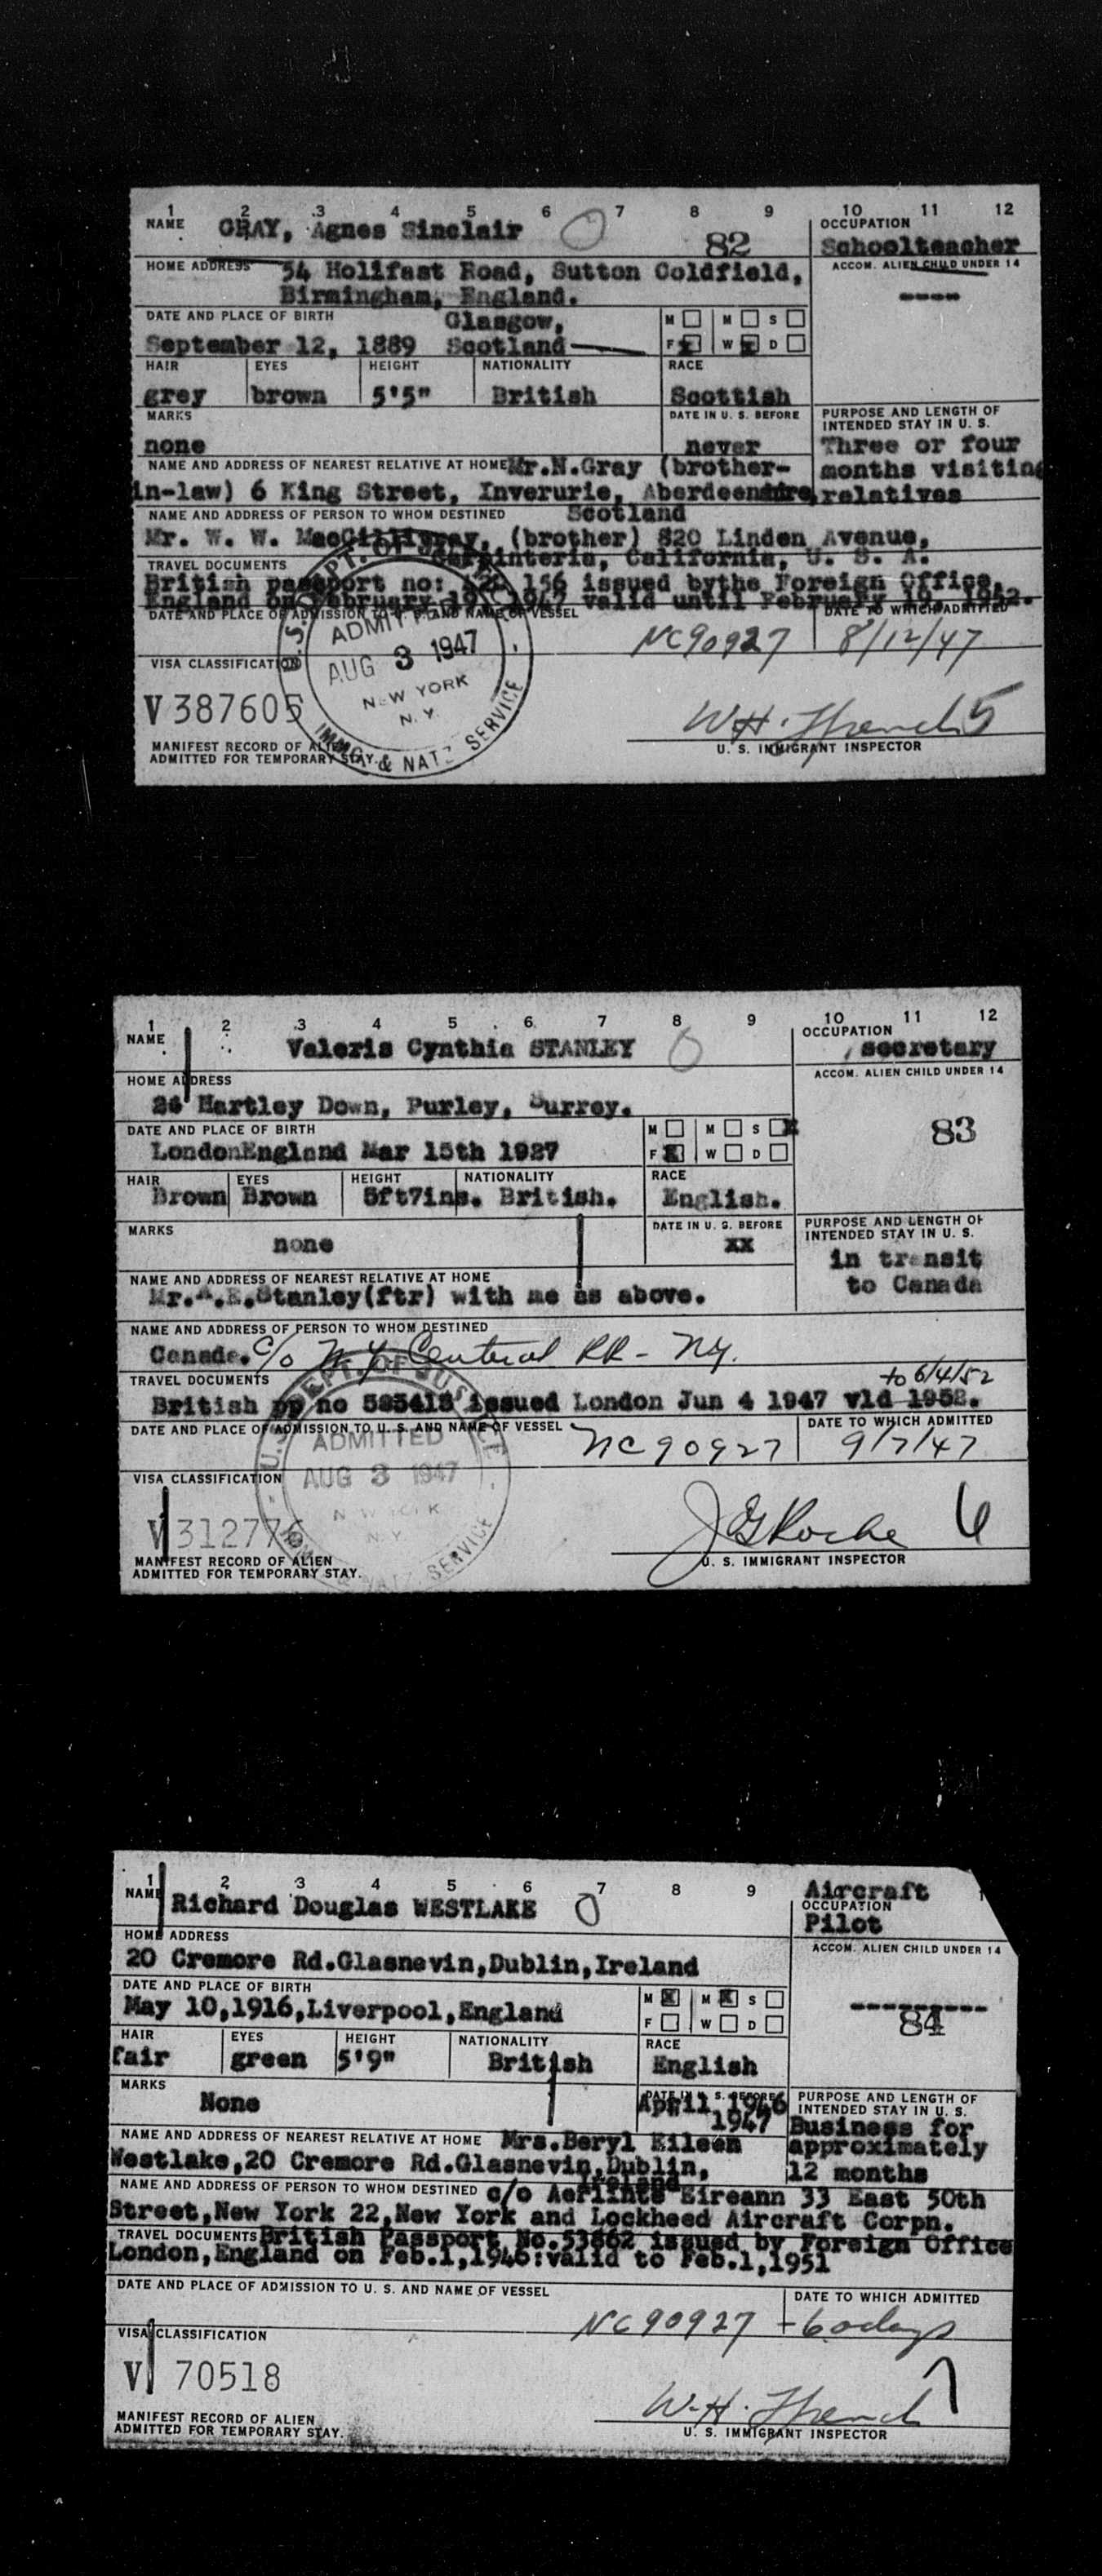 1 2 3 4 5 6 7 8 9 10 11 12
NAME GRAY, Agnes Sinclair 82
OCCUPATION
Schoolteacher
HOME ADDRESS 54 Holifast Road, Sutton Coldfield,
Birmingham, England.
ACCOM. ALIEN CHILD UNDER 14
----
DATE AND PLACE OF BIRTH Glasgow,
September 12, 1889 Scotland
M M S
F W D
HAIR EYES HEIGHT NATIONALITY RACE
grey brown 5'5" British Scottish
MARKS DATE IN U. S. BEFORE
none never
PURPOSE AND LENGTH OF
INTENDED STAY IN U. S.
Three or four
months visiting
relatives
NAME AND ADDRESS OF NEAREST RELATIVE AT HOME Mr.N.Gray (brother-
in-law) 6 King Street, Inverurie, Aberdeenshire,
NAME AND ADDRESS OF PERSON TO WHOM DESTINED Scotland
Mr. W. W. MacGillivray, (brother) 820 Linden Avenue,
Carpinteria, California, U. S. A.
TRAVEL DOCUMENTS
British passport no: 156 issued bythe Foreign Office,
England on February 19, 1947 valid until February 19, 1952.
DATE AND PLACE OF ADMISSION TO U. S. AND NAME OF VESSEL DATE TO WHICH ADMITTED
NC90927 8/12/47
VISA CLASSIFICATION
V 387605
U.S. DEPT. OF JUSTICE
ADMITTED
AUG 3 1947
NEW YORK
N. Y.
IMMG. & NATZ. SERVICE
W.H. French 5
MANIFEST RECORD OF ALIEN
ADMITTED FOR TEMPORARY STAY.
U. S. IMMIGRANT INSPECTOR
1 2 3 4 5 6 7 8 9 10 11 12
NAME Valeris Cynthia STANLEY
OCCUPATION
secretary
HOME ADDRESS
24 Hartley Down, Purley, Surrey.
ACCOM. ALIEN CHILD UNDER 14
83
DATE AND PLACE OF BIRTH
LondonEngland Mar 15th 1927
M M S
F W D
HAIR EYES HEIGHT NATIONALITY RACE
Brown Brown 5ft7ins. British. English.
MARKS DATE IN U. S. BEFORE
none xx
PURPOSE AND LENGTH OF
INTENDED STAY IN U. S.
in transit
to Canada
NAME AND ADDRESS OF NEAREST RELATIVE AT HOME
Mr. Stanley(ftr) with me as above.
NAME AND ADDRESS OF PERSON TO WHOM DESTINED
Canada. c/o N.Y. Central RR - N.Y.
TRAVEL DOCUMENTS to 6/4/52
British pp no 585418 issued London Jun 4 1947 vld 1952.
DATE AND PLACE OF ADMISSION TO U. S. AND NAME OF VESSEL DATE TO WHICH ADMITTED
NC90927 9/7/47
VISA CLASSIFICATION
V 312776
U.S. DEPT. OF JUSTICE
ADMITTED
AUG 3 1947
NEW YORK
N.Y.
IMMG. & NATZ. SERVICE
J G Roche 6
MANIFEST RECORD OF ALIEN
ADMITTED FOR TEMPORARY STAY.
U. S. IMMIGRANT INSPECTOR
1 2 3 4 5 6 7 8 9
NAME Richard Douglas WESTLAKE
Aircraft
OCCUPATION
Pilot
HOME ADDRESS
20 Cremore Rd.Glasnevin,Dublin,Ireland
ACCOM. ALIEN CHILD UNDER 14
84
DATE AND PLACE OF BIRTH
May 10,1916,Liverpool,England
M M S
F W D
HAIR EYES HEIGHT NATIONALITY RACE
fair green 5'9" British English
MARKS DATE IN U. S. BEFORE
None April, 1946
1947
PURPOSE AND LENGTH OF
INTENDED STAY IN U. S.
Business for
approximately
12 months
NAME AND ADDRESS OF NEAREST RELATIVE AT HOME Mrs.Beryl Eileen
Westlake,20 Cremore Rd.Glasnevin,Dublin,
Ireland
NAME AND ADDRESS OF PERSON TO WHOM DESTINED c/o Aerlinte Eireann 33 East 50th
Street,New York 22,New York and Lockheed Aircraft Corpn.
TRAVEL DOCUMENTS British Passport No.53862 issued by Foreign Office
London,England on Feb.1,1946:valid to Feb.1,1951
DATE AND PLACE OF ADMISSION TO U. S. AND NAME OF VESSEL DATE TO WHICH ADMITTED
NC90927 +60days
VISA CLASSIFICATION
V 70518
W.H. French 7
MANIFEST RECORD OF ALIEN
ADMITTED FOR TEMPORARY STAY.
U. S. IMMIGRANT INSPECTOR